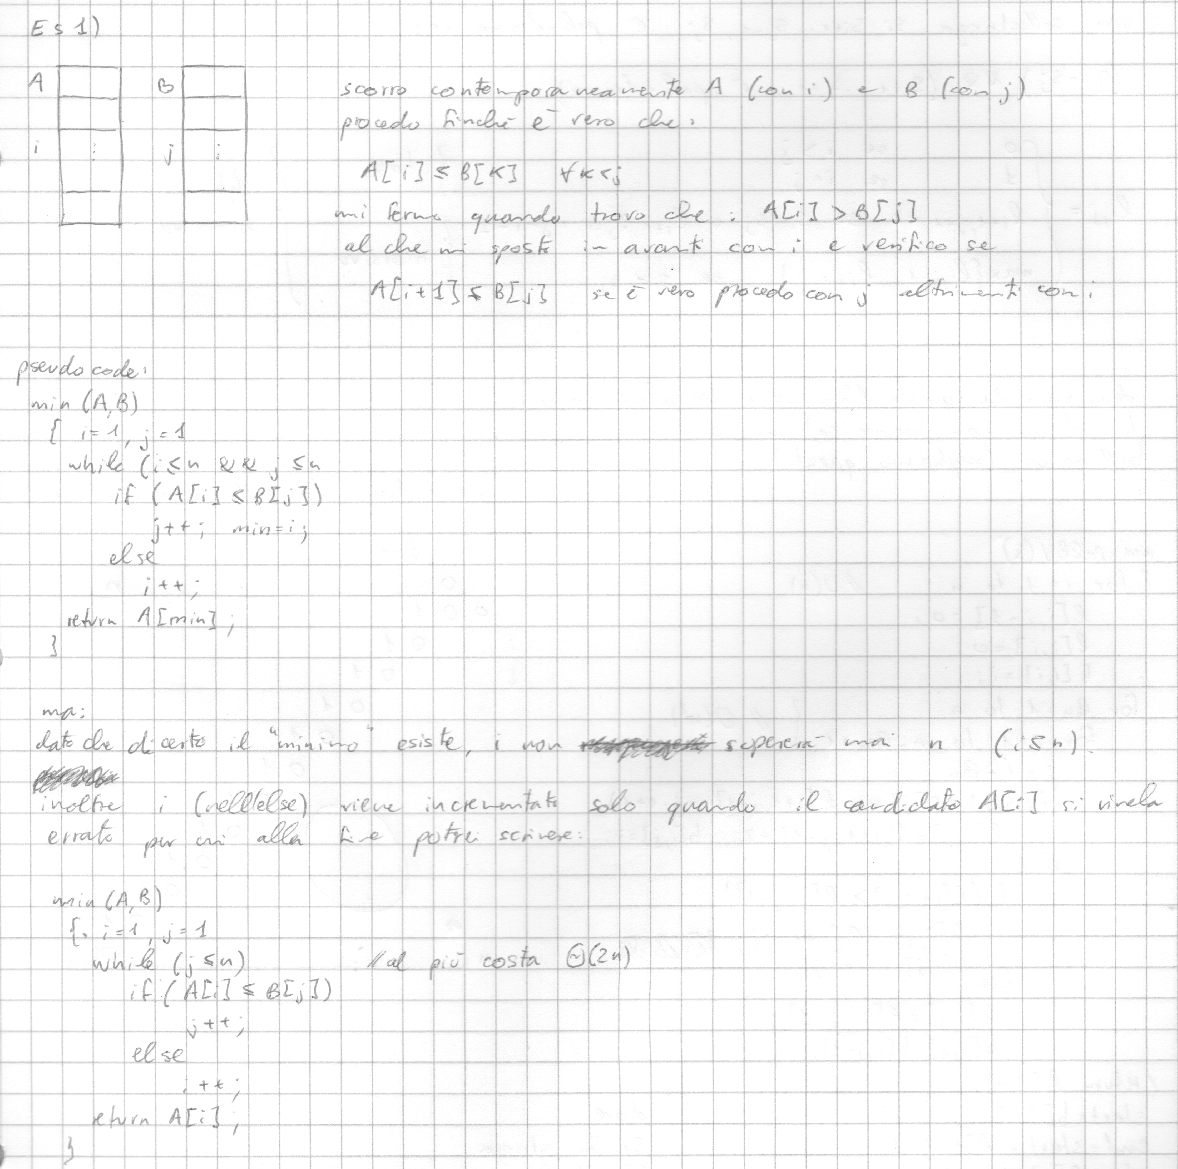 Es 1)
A B
i : j :
scorro contemporaneamente A (con i) e B (con j)
procedo finché è vero che:
A[i] ≤ B[K] ∀K<j
mi fermo quando trovo che : A[i] > B[j]
al che mi sposto in avanti con i e verifico se
A[i+1] ≤ B[j] se è vero procedo con j altrimenti con i
pseudo code:
min (A,B)
{ i=1, j=1
while (i≤n && j≤n
if (A[i] ≤ B[j])
j++; min=i;
else
i++;
return A[min];
}
ma:
dato che di certo il "minimo" esiste, i non supererà mai n (i≤n).
inoltre i (nell'else) viene incrementato solo quando il candidato A[i] si rivela
errato per cui alla fine potrei scrivere:
min (A,B)
{ i=1, j=1
while (j≤n) //al più costa Θ(2n)
if (A[i] ≤ B[j])
j++;
else
i++;
return A[i];
}